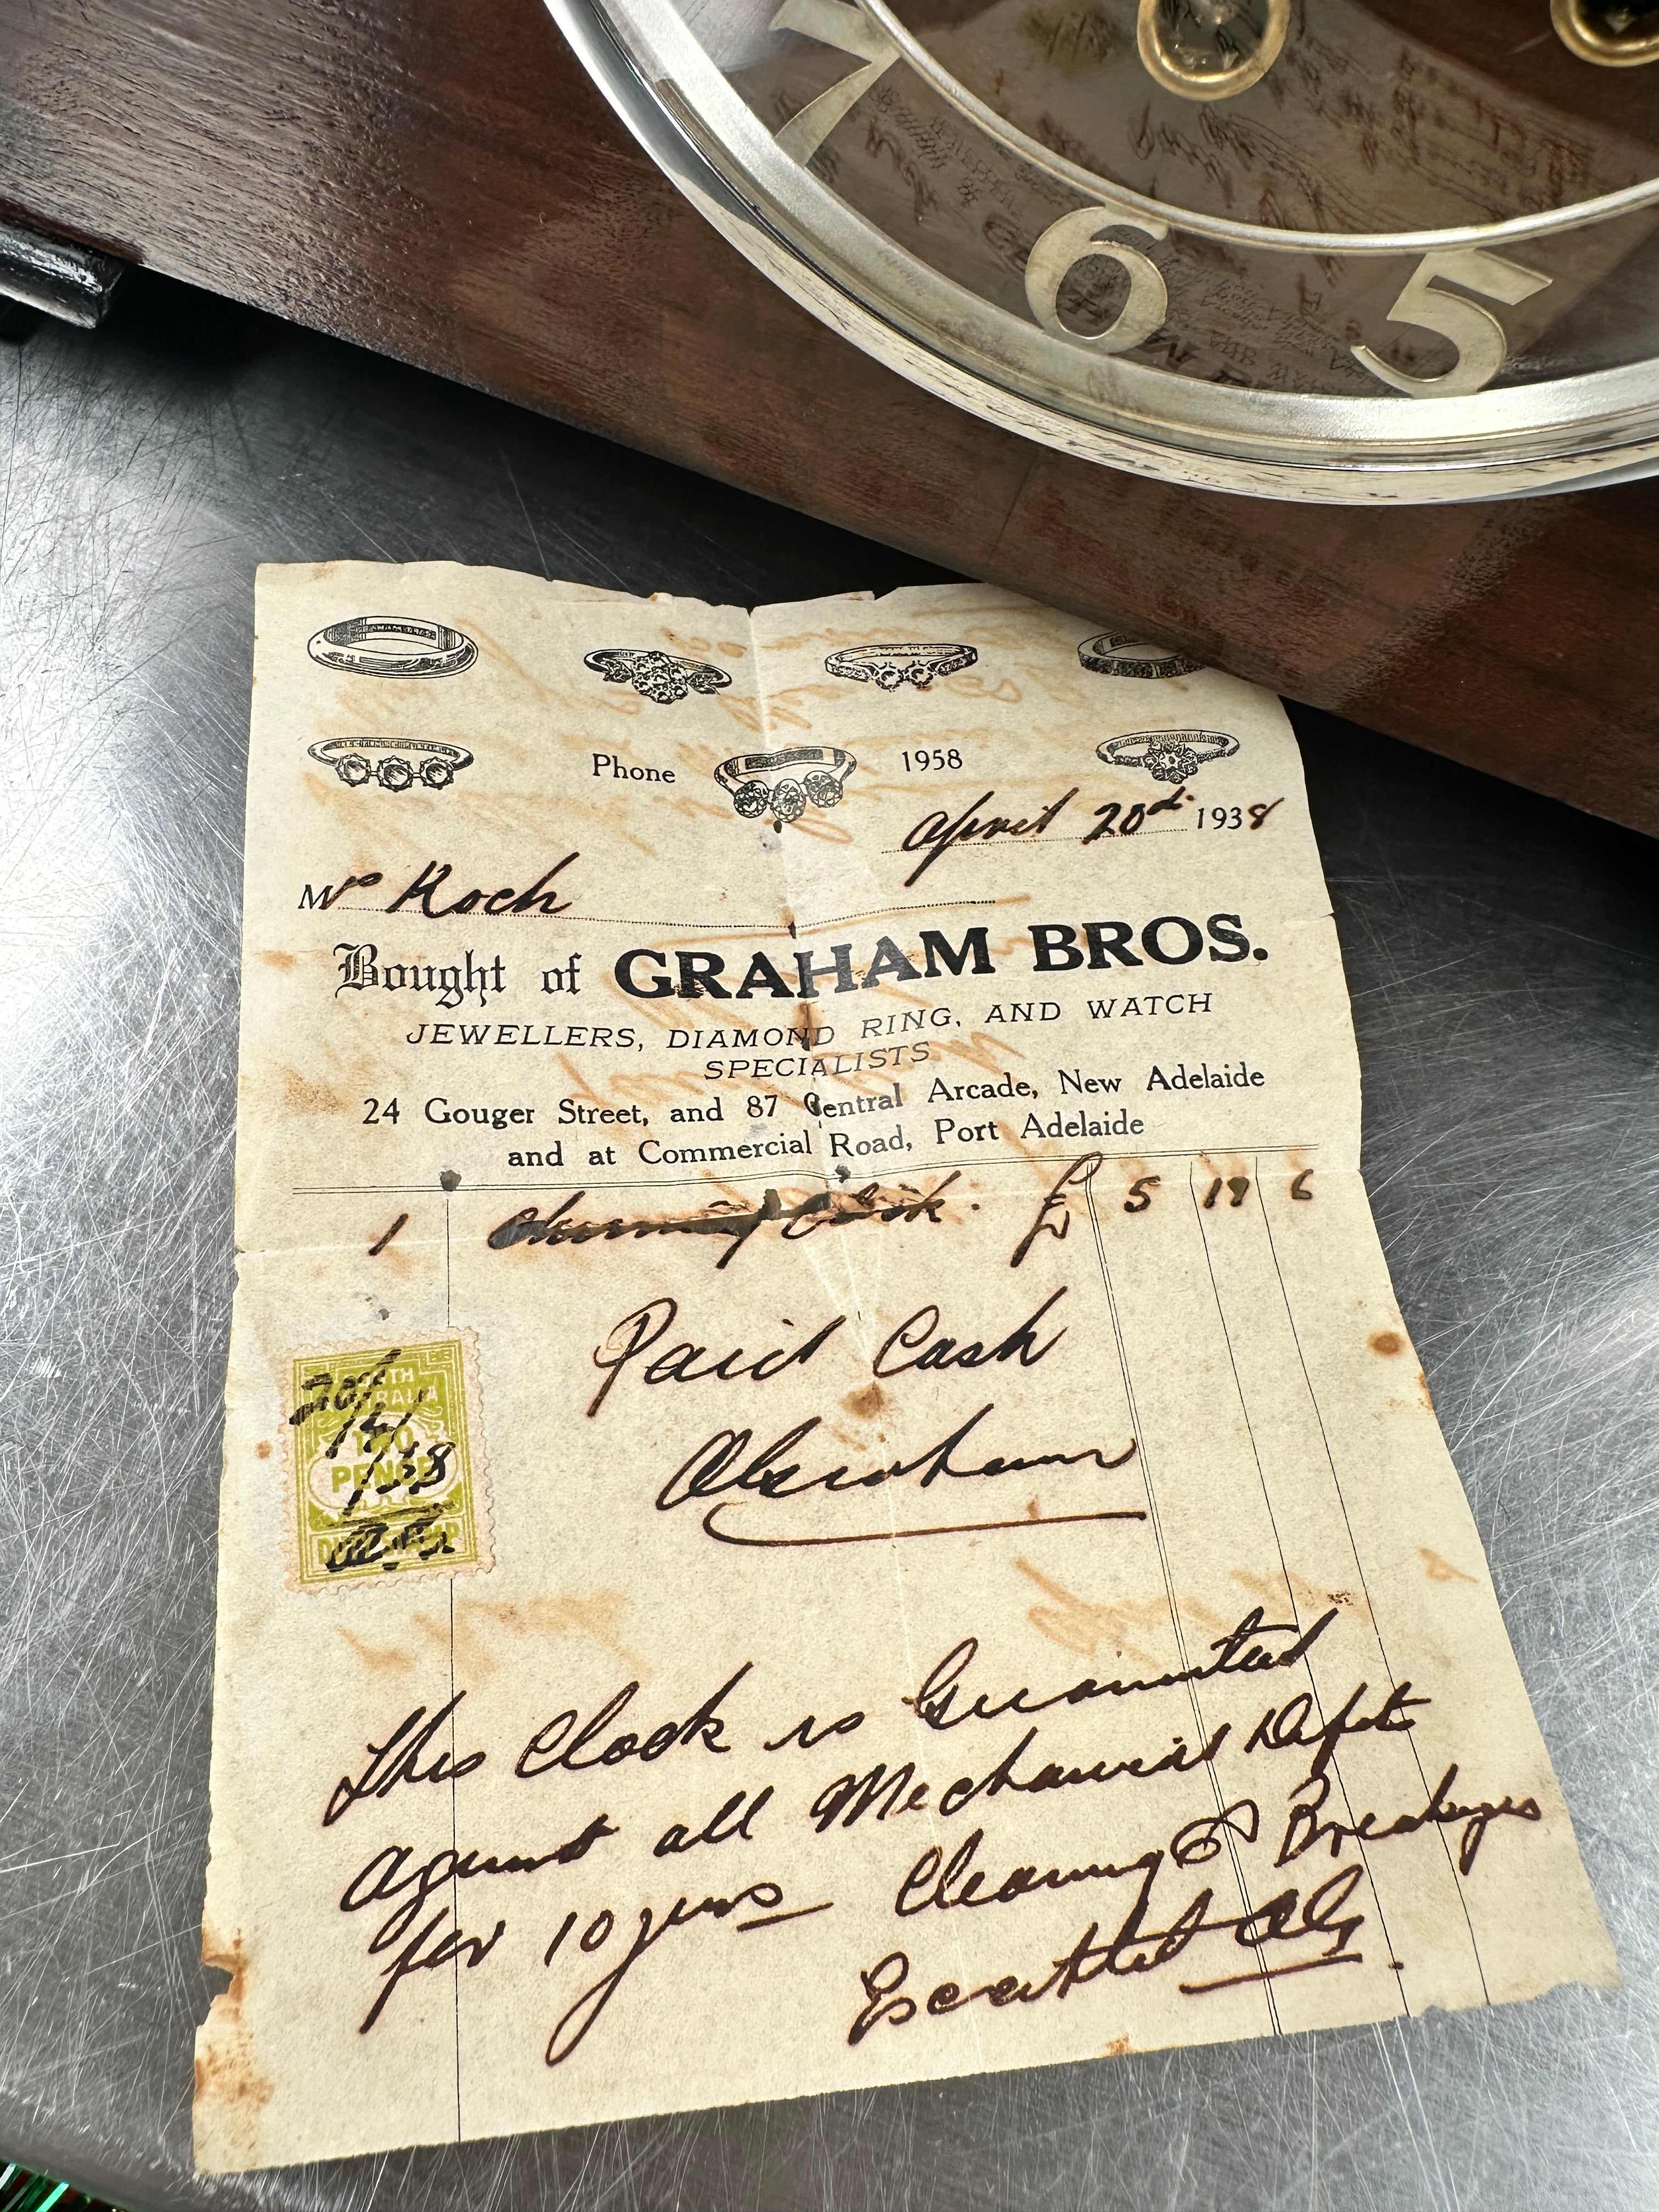 7
6
5
Phone 1958
April 20th 1938
Mrs Koch
Bought of GRAHAM BROS.
JEWELLERS, DIAMOND RING, AND WATCH
SPECIALISTS
24 Gouger Street, and 87 Central Arcade, New Adelaide
and at Commercial Road, Port Adelaide
1 Clock. £ 5 19 6
Paid Cash
SOUTH
AUSTRALIA
TWO
PENCE
20/4/38
DUTY STAMP
This Clock is Guaranteed
against all Mechanical Defets
for 10 years Cleaning & Breakages
Excepted